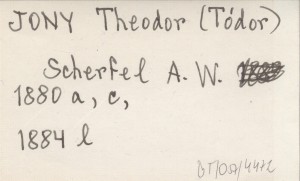 JONY Theodor (Tódor)
Scherfel A. W.
1880 a, c,
1884 l